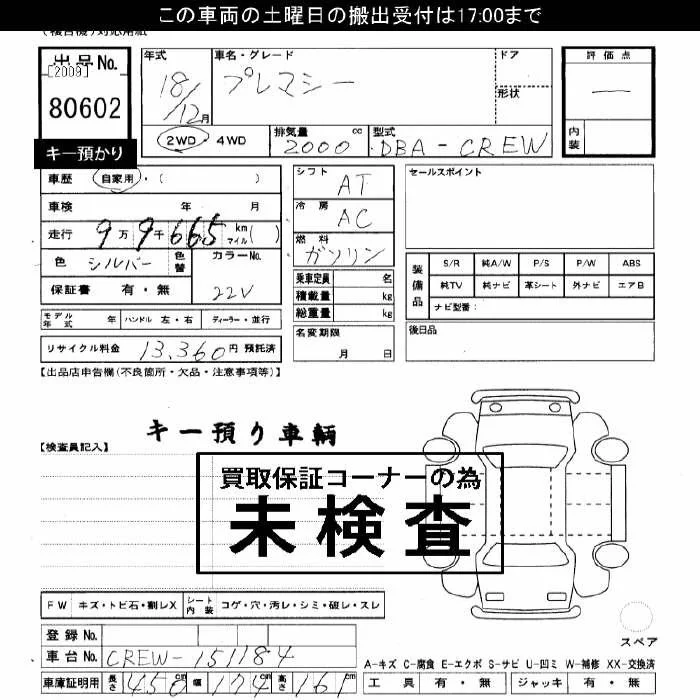 この車両の土曜日の搬出受付は17:00まで
(複合機)対応用紙
出品No.
[2009]
80602
キー預かり
年式
18/12月
車名・グレード
プレマシー
ドア
形状
評価点
—
内装
2WD・4WD
排気量 2000 cc
型式 DBA-CREW
車歴 自家用・( )
車検 年 月
走行 9万9千665 km マイル( )
色 シルバー 色替
カラーNo. 22V
保証書 有・無
シフト AT
冷房 AC
燃料 ガソリン
乗車定員 名
積載量 kg
総重量 kg
セールスポイント
装備品
S/R 純A/W P/S P/W ABS
純TV 純ナビ 革シート 外ナビ エアB
ナビ型番:
モデル年式 年 ハンドル 左・右 ディーラー・並行
名変期限 月 日
後日品
リサイクル料金 13,360円 預託済
【出品店申告欄(不良箇所・欠品・注意事項等)】
キー預り車輌
【検査員記入】
買取保証コーナーの為
未検査
FW キズ・トビ石・割レX シート内装 コゲ・穴・汚レ・シミ・破レ・スレ
登録No.
車台No. CREW-151184
車庫証明用 長さ 450cm 幅 174cm 高さ 161cm
スペア
A-キズ C-腐食 E-エクボ S-サビ U-凹ミ W-補修 XX-交換済
工具 有・無 ジャッキ 有・無